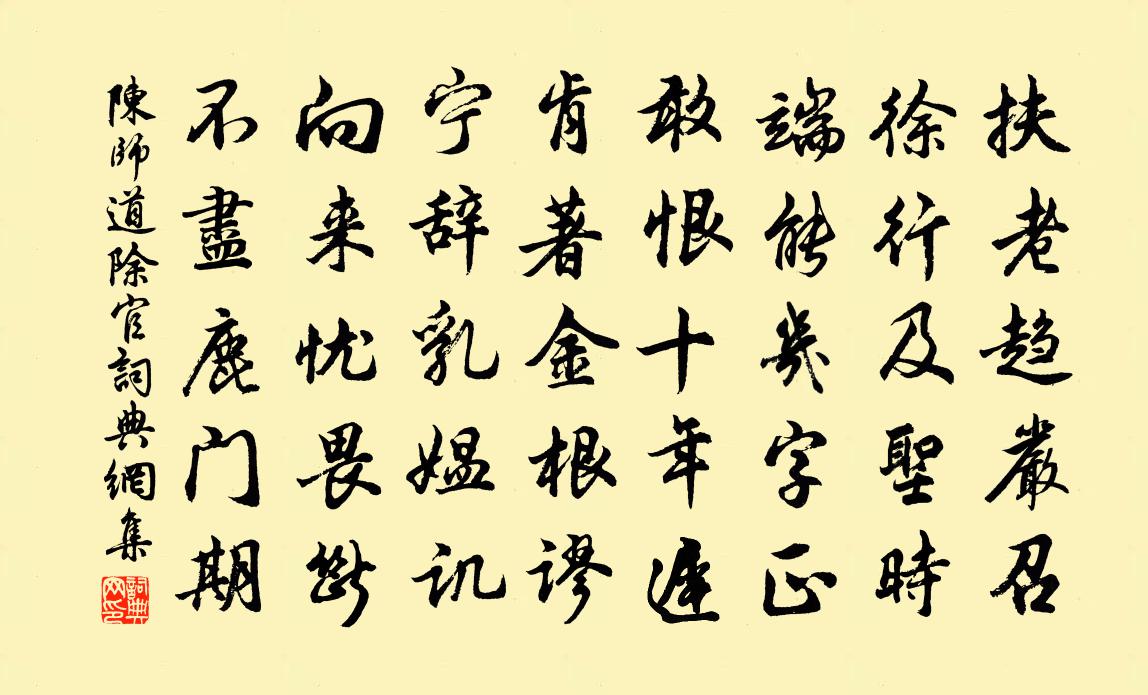 扶老趋嚴召
徐行及聖時
端能幾字正
敢恨十年遲
肯著金根謬
宁辞乳媪讥
向来忧畏斷
不盡鹿门期
陳師道除官詞典網集
詞典網印